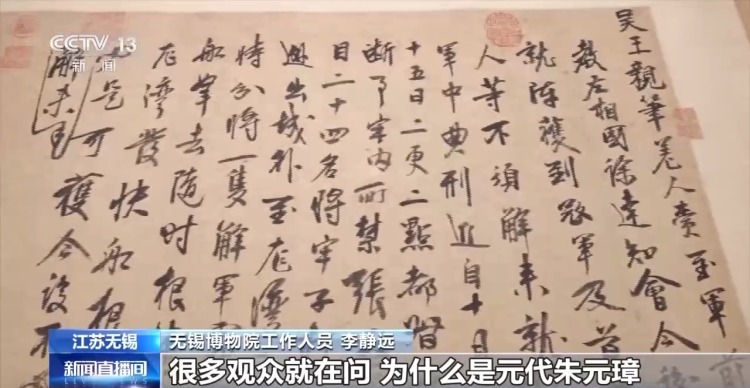 CCTV 13
新闻
吴王親筆差人賫至軍
教左相國徐達知會今
就陣獲到寇軍及首
人等不須解来就
軍中典刑近自十月
十五日二更二點都
斷事牢内所禁張
目二十四名將牢子
出城外至龍灣
時分將一隻解軍
船去随时根
龍灣發快船根
是可獲今後不
解来
江苏无锡
无锡博物院工作人员 李静远
新闻直播间
很多观众就在问 为什么是元代朱元璋